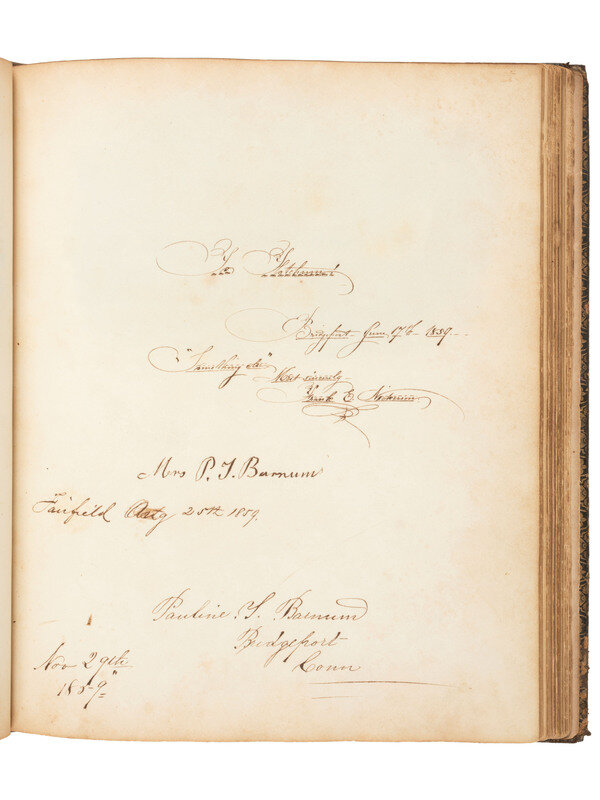 To
Bridgeport June 17th 1859.
"Something else"
Most sincerely
Frank E.
Mrs P. T. Barnum
Fairfield Aug 25th 1859.
Pauline. T. Barnum
Bridgeport
Conn
Nov 29th
1859"